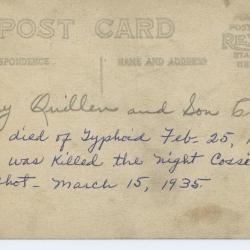 POST CARD
RESPONDENCE
NAME AND ADDRESS
POST
STA
y Quillen and Son
died of Typhoid Feb. 25, 
was Killed the night Cossé
shot - March 15, 1935.